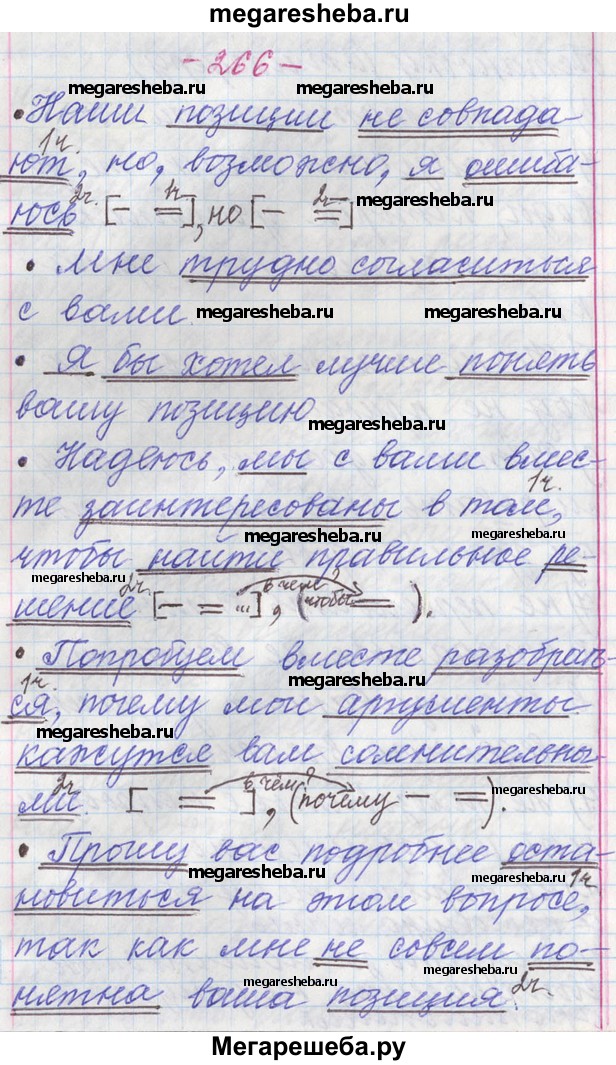 megaresheba.ru
-266-
megaresheba.ru megaresheba.ru
• Наши позиции не совпада-
1ч.
ют, но, возможно, я ошиба-
2ч. 1ч 2ч
юсь [- =], но [- =]
megaresheba.ru
• Мне трудно согласиться
с вами. megaresheba.ru megaresheba.ru
• Я бы хотел лучше понять
вашу позицию megaresheba.ru
• Надеюсь, мы с вами вмес-
1ч.
те заинтересованы в том,
megaresheba.ru
чтобы найти правильное ре-
megaresheba.ru 2ч. в чем? megaresheba.ru
шение [- = ...], (чтобы = ).
• Попробуем вместе разобрать-
1ч. megaresheba.ru
ся, почему мои аргументы
megaresheba.ru
кажутся вам сомнительны-
2ч. в чём?
ми. [ = ], (почему - =).
• Прошу вас подробнее оста-
megaresheba.ru 1ч
новиться на этом вопросе,
так как мне не совсем по-
megaresheba.ru megaresheba.ru
нятна ваша позиция. 2ч.
Мегарешеба.ру